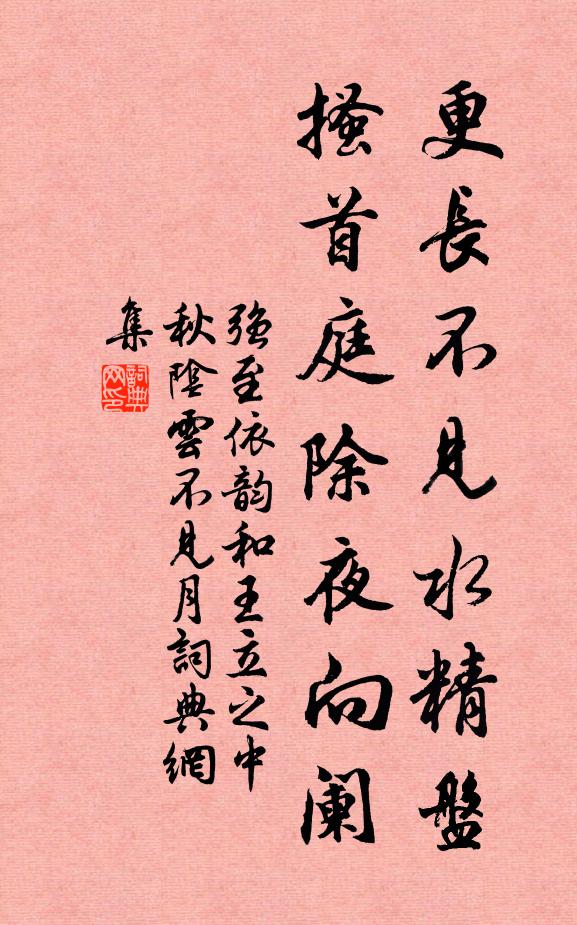 更長不見水精盤
搔首庭除夜向阑
強至依韵和王立之中
秋陰雲不見月詞典網
集
詞典
网印